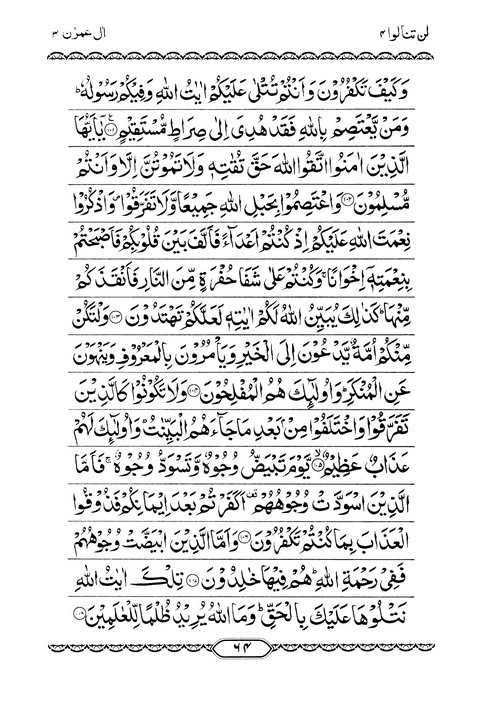 لن تنالوا ۴
اٰل عمرٰن ۳
وَكَيْفَ تَكْفُرُوْنَ وَاَنْتُمْ تُتْلٰى عَلَيْكُمْ اٰيٰتُ اللّٰهِ وَفِيْكُمْ رَسُوْلُهٗ ؕ
وَمَنْ يَّعْتَصِمْ بِاللّٰهِ فَقَدْ هُدِىَ اِلٰى صِرَاطٍ مُّسْتَقِيْمٍ ۝۱۰۱ يٰۤاَيُّهَا
الَّذِيْنَ اٰمَنُوا اتَّقُوا اللّٰهَ حَقَّ تُقٰتِهٖ وَلَا تَمُوْتُنَّ اِلَّا وَاَنْتُمْ
مُّسْلِمُوْنَ ۝۱۰۲ وَاعْتَصِمُوْا بِحَبْلِ اللّٰهِ جَمِيْعًا وَّلَا تَفَرَّقُوْا ۪ وَاذْكُرُوْا
نِعْمَتَ اللّٰهِ عَلَيْكُمْ اِذْ كُنْتُمْ اَعْدَآءً فَاَلَّفَ بَيْنَ قُلُوْبِكُمْ فَاَصْبَحْتُمْ
بِنِعْمَتِهٖۤ اِخْوَانًا ۚ وَكُنْتُمْ عَلٰى شَفَا حُفْرَةٍ مِّنَ النَّارِ فَاَنْقَذَكُمْ
مِّنْهَا ؕ كَذٰلِكَ يُبَيِّنُ اللّٰهُ لَكُمْ اٰيٰتِهٖ لَعَلَّكُمْ تَهْتَدُوْنَ ۝۱۰۳ وَلْتَكُنْ
مِّنْكُمْ اُمَّةٌ يَّدْعُوْنَ اِلَى الْخَيْرِ وَيَاْمُرُوْنَ بِالْمَعْرُوْفِ وَيَنْهَوْنَ
عَنِ الْمُنْكَرِ ؕ وَاُولٰٓئِكَ هُمُ الْمُفْلِحُوْنَ ۝۱۰۴ وَلَا تَكُوْنُوْا كَالَّذِيْنَ
تَفَرَّقُوْا وَاخْتَلَفُوْا مِنْۢ بَعْدِ مَا جَآءَهُمُ الْبَيِّنٰتُ ؕ وَاُولٰٓئِكَ لَهُمْ
عَذَابٌ عَظِيْمٌ ۝۱۰۵ يَّوْمَ تَبْيَضُّ وُجُوْهٌ وَّتَسْوَدُّ وُجُوْهٌ ۚ فَاَمَّا
الَّذِيْنَ اسْوَدَّتْ وُجُوْهُهُمْ ۟ اَكَفَرْتُمْ بَعْدَ اِيْمَانِكُمْ فَذُوْقُوا
الْعَذَابَ بِمَا كُنْتُمْ تَكْفُرُوْنَ ۝۱۰۶ وَاَمَّا الَّذِيْنَ ابْيَضَّتْ وُجُوْهُهُمْ
فَفِيْ رَحْمَةِ اللّٰهِ ؕ هُمْ فِيْهَا خٰلِدُوْنَ ۝۱۰۷ تِلْكَ اٰيٰتُ اللّٰهِ
نَتْلُوْهَا عَلَيْكَ بِالْحَقِّ ؕ وَمَا اللّٰهُ يُرِيْدُ ظُلْمًا لِّلْعٰلَمِيْنَ ۝۱۰۸
۶۴